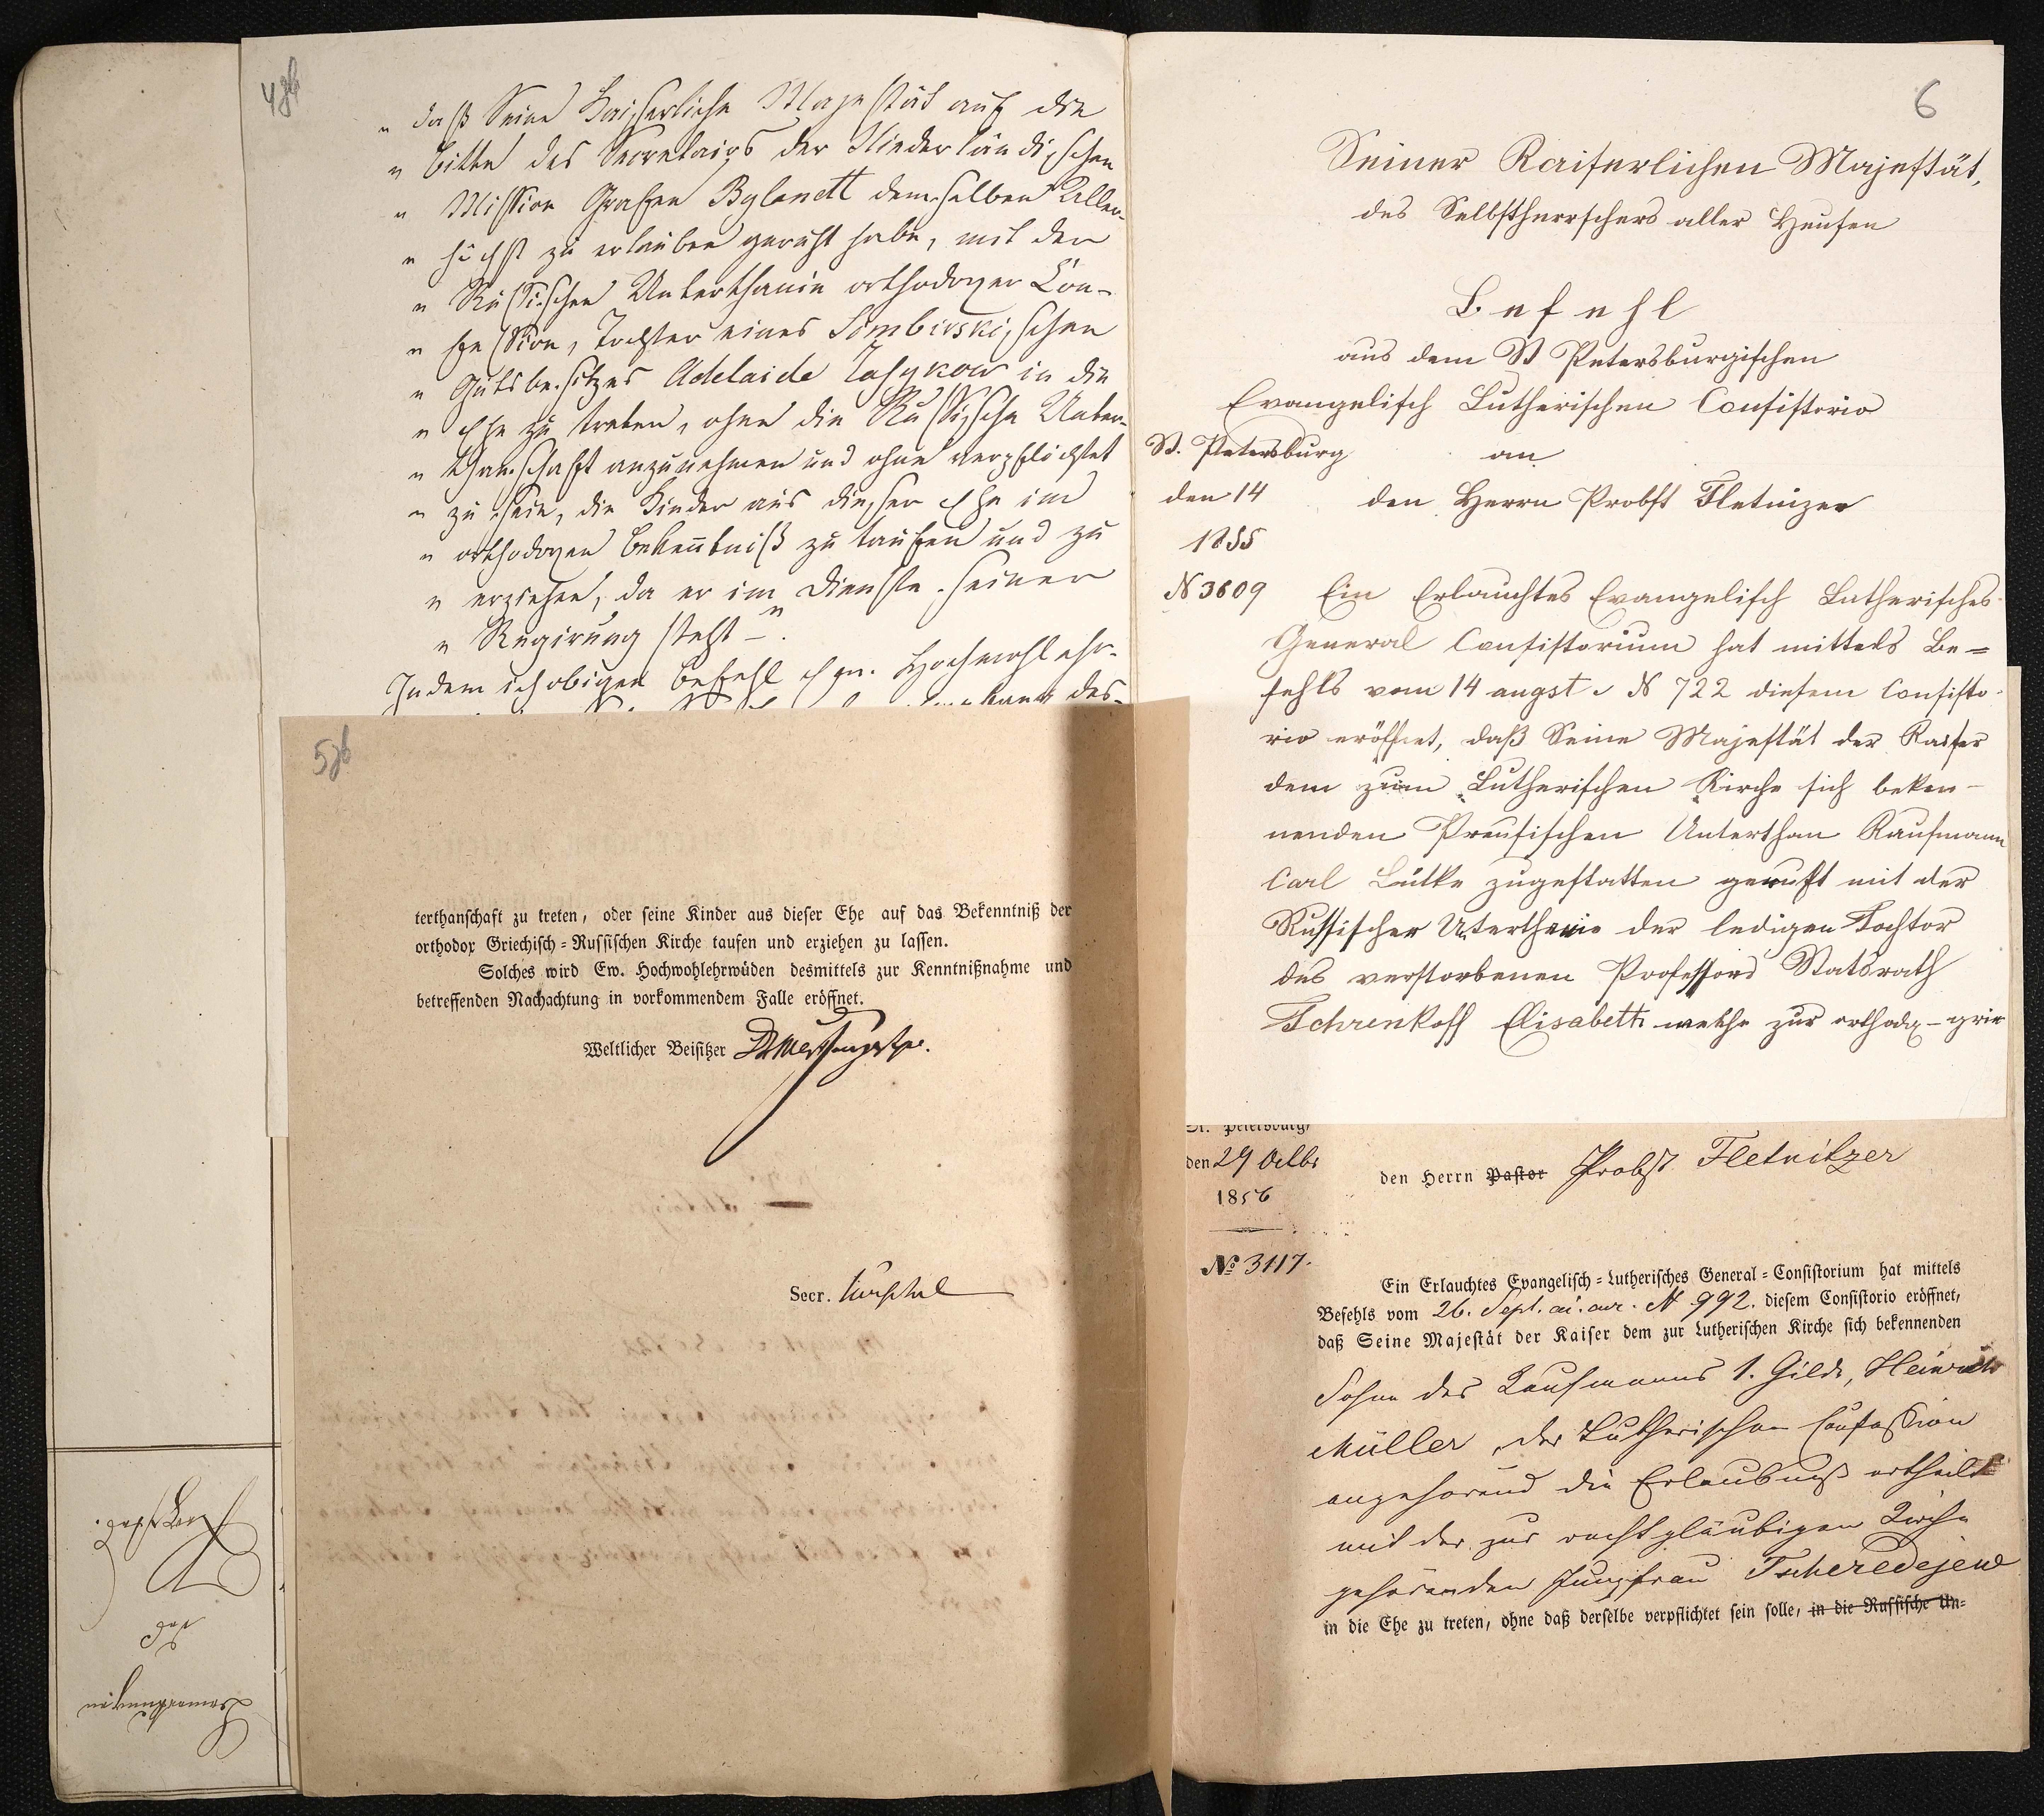 4 gb
„ daß Seine Kaiserliche Majestät auf die
„ bitte des Secretairs der Niederländischen
„ Mission Grafen Bylandt demselben Aller-
„ höchst zu erlauben geruht habe, mit der
„ Russischen Unterthanin orthodoxer Con-
„ fession, Tochter eines Simbirskischen
„ Gutsbesitzers Adelaide Jasykow in die
„ Ehe zu treten, ohne die Russische Unter-
„ thanschaft anzunehmen und ohne verpflichtet
„ zu sein, die Kinder aus dieser Ehe im
„ orthodoxen Bekenntniß zu taufen und zu
„ erziehen, da er im Dienste seiner
„ Regirung steht –".
Indem ich obigen Befehl Ew. Hochwohlehr-
5 gb
terthanschaft zu treten, oder seine Kinder aus dieser Ehe auf das Bekenntniß der
orthodox Griechisch=Russischen Kirche taufen und erziehen zu lassen.
Solches wird Ew. Hochwohlehrwüden desmittels zur Kenntnißnahme und
betreffenden Nachachtung in vorkommendem Falle eröffnet.
Weltlicher Beisitzer
Secr.
6
Seiner Kaiserlichen Majestät,
des Selbstherrschers aller Reußen
Befehl
aus dem St Petersburgischen
Evangelisch Lutherischen Consistorio
St. Petersburg an
den 14 den Herrn Probst Fletnizer
1855
N 3609 Ein Erlauchtes Evangelisch Lutherisches
General Consistorium hat mittels Be=
fehls vom 14 augst c N 722 diesem Consisto-
rio eröffnet, daß Seine Majestät der Kaiser
dem zum Lutherischen Kirche sich beken-
nenden Preusischen Unterthan Kaufmann
Carl Lütke zugestatten geruht mit der
Russischer Uterthanin der ledigen Tochtor
des verstorbenen Professors Statsrath
Schrenkoff Elisabeth welche zur orthodox-grie
St. Petersburg,
den 29 Octbr
1856
den Herrn Pastor Probst Fletnitzer
№ 3117.
Ein Erlauchtes Evangelisch=Lutherisches General=Consistorium hat mittels
Befehls vom 26. Sept. ai. cur. N 992. diesem Consistorio eröffnet,
daß Seine Majestät der Kaiser dem zur Lutherischen Kirche sich bekennenden
Sohne des Kaufmanns 1. Gilde, Heinrich
Müller, der Lutherischen Confession
angehörend die Erlaubniß ertheilt
mit der zur rechtgläubigen Kirche
gehörenden Jungfrau Tscheredejew
in die Ehe zu treten, ohne daß derselbe verpflichtet sein solle, in die Russische Un=
Bemerkungen